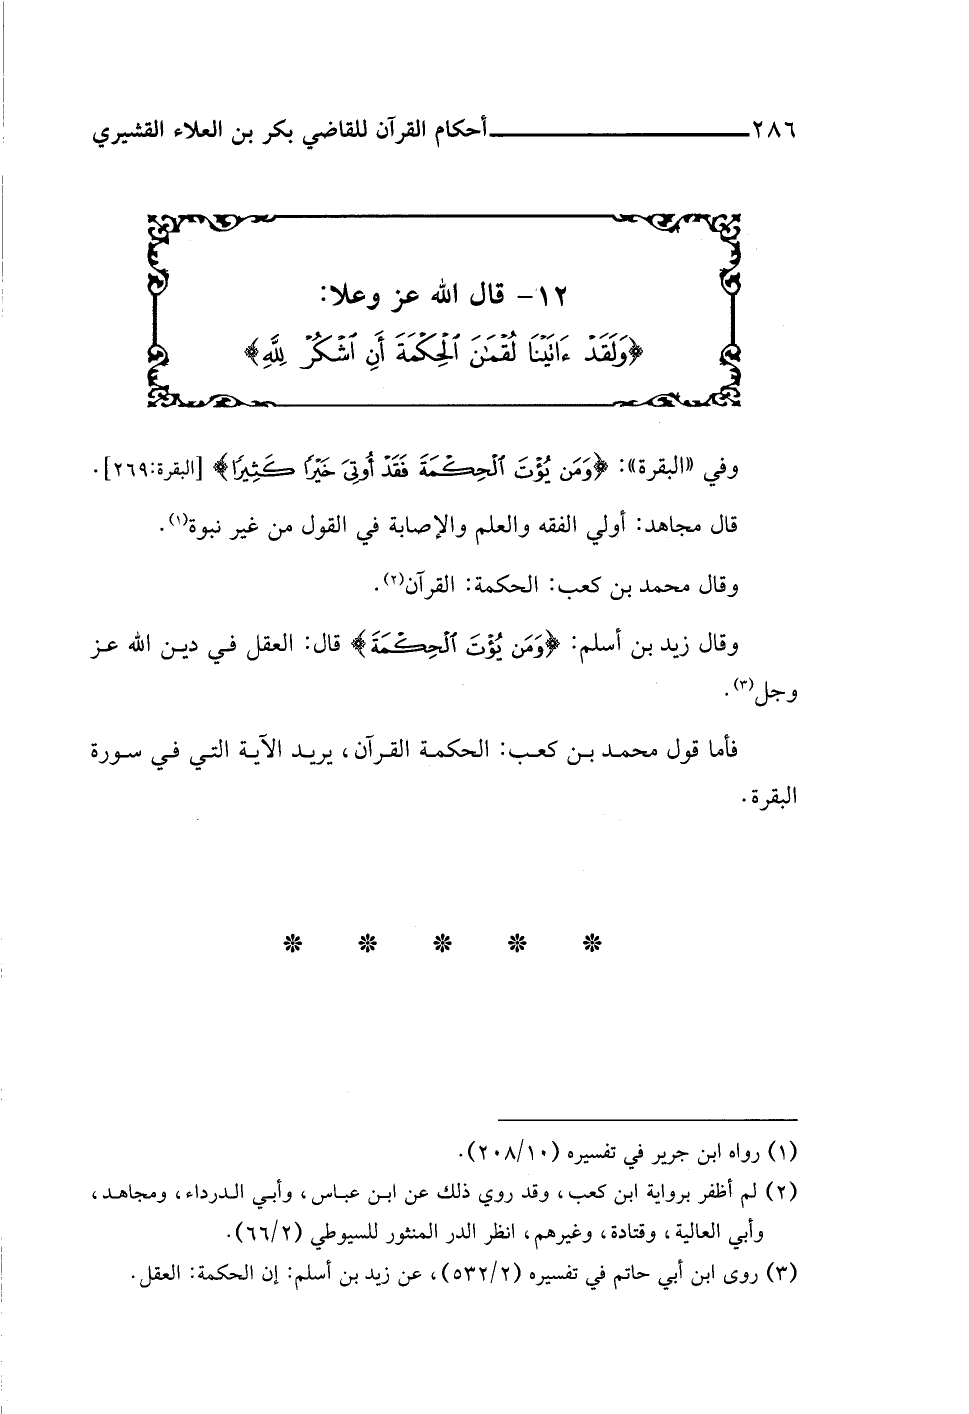 ٢٨٦ أحكام القرآن للقاضي بكر بن العلاء القشيري
١٢- قال الله عز وعلا:
﴿وَلَقَدْ ءَاتَيْنَا لُقْمَٰنَ ٱلْحِكْمَةَ أَنِ ٱشْكُرْ لِلَّهِ﴾
وفي «البقرة»: ﴿وَمَن يُؤْتَ ٱلْحِكْمَةَ فَقَدْ أُوتِىَ خَيْرًا كَثِيرًا﴾ [البقرة:٢٦٩].
قال مجاهد: أولي الفقه والعلم والإصابة في القول من غير نبوة(١).
وقال محمد بن كعب: الحكمة: القرآن(٢).
وقال زيد بن أسلم: ﴿وَمَن يُؤْتَ ٱلْحِكْمَةَ﴾ قال: العقل في دين الله عز
وجل(٣).
فأما قول محمد بن كعب: الحكمة القرآن، يريد الآية التي في سورة
البقرة.
(١) رواه ابن جرير في تفسيره (٢٠٨/١٠).
(٢) لم أظفر برواية ابن كعب، وقد روي ذلك عن ابن عباس، وأبي الدرداء، ومجاهد،
وأبي العالية، وقتادة، وغيرهم، انظر الدر المنثور للسيوطي (٦٦/٢).
(٣) روى ابن أبي حاتم في تفسيره (٥٣٢/٢)، عن زيد بن أسلم: إن الحكمة: العقل.